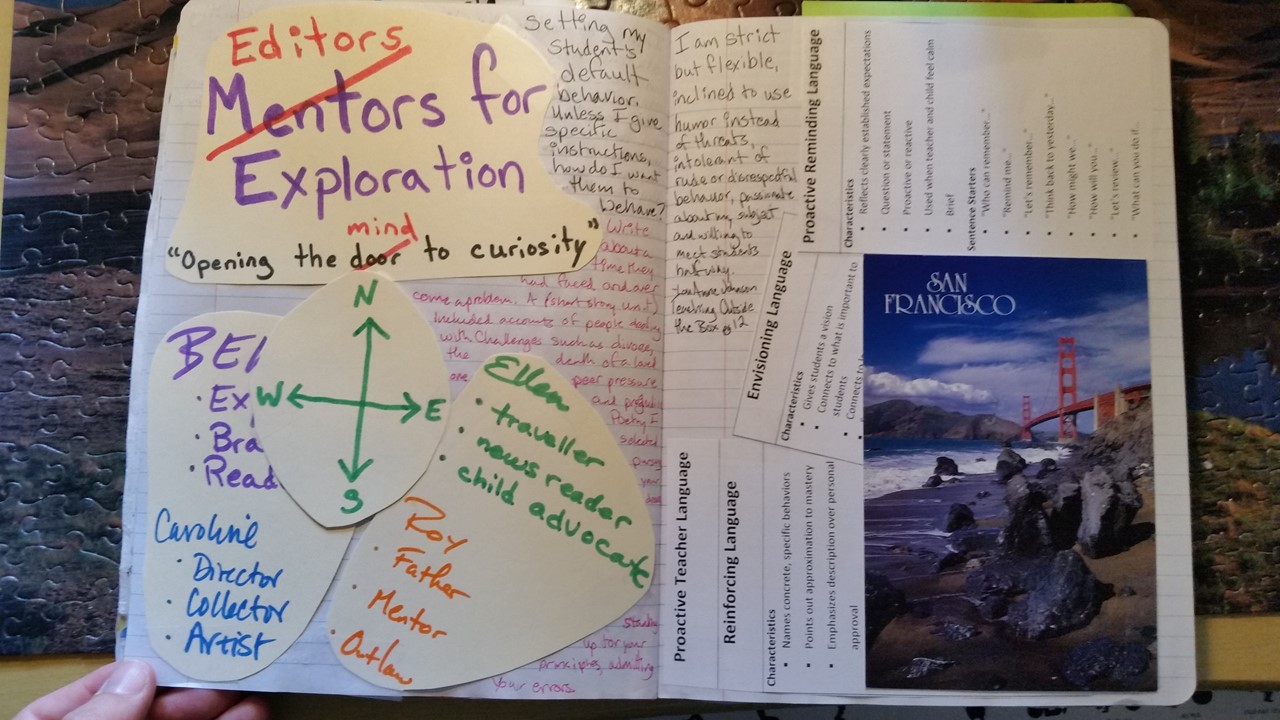 Editors
Mentors for
Exploration
mind
"Opening the door to curiosity"
N
W
E
S
BEI
Ex
Bra
Read
Caroline
• Director
• Collector
• Artist
Ellen
• traveller
• newsreader
• child advocate
Roy
• Father
• Mentor
• Outlaw
setting my
student's
default
behavior.
Unless I give
specific
instructions,
how do I want
them to
behave?
Write
about a
time they
had faced and over
come a problem. A (short story unit)
Included accounts of people dealing
with challenges such as divorce,
the death of a loved
one peer pressure
and
Poetry I
selected
up for your
principles, admitting
your errors.
I am strict
but flexible,
inclined to use
humor instead
of threats,
intolerant of
rude or disrespectful
behavior, passionate
about my subject
and willing to
meet students
half way.
LouAnne Johnson
Teaching Outside
the Box pg 12
Proactive Reminding Language
Characteristics
• Reflects clearly established expectations
• Question or statement
• Proactive or reactive
• Used when teacher and child feel calm
• Brief
Sentence Starters
• "Who can remember…"
• "Remind me…"
• "Let's remember…"
• "Think back to yesterday…"
• "How might we…"
• "How will you…"
• "Let's review…"
• "What can you do if…
Envisioning Language
Characteristics
• Gives students a vision
• Connects to what is important to
students
• Connects to
Proactive Teacher Language
Reinforcing Language
Characteristics
• Names concrete, specific behaviors
• Points out approximation to mastery
• Emphasizes description over personal
approval
SAN
FRANCISCO